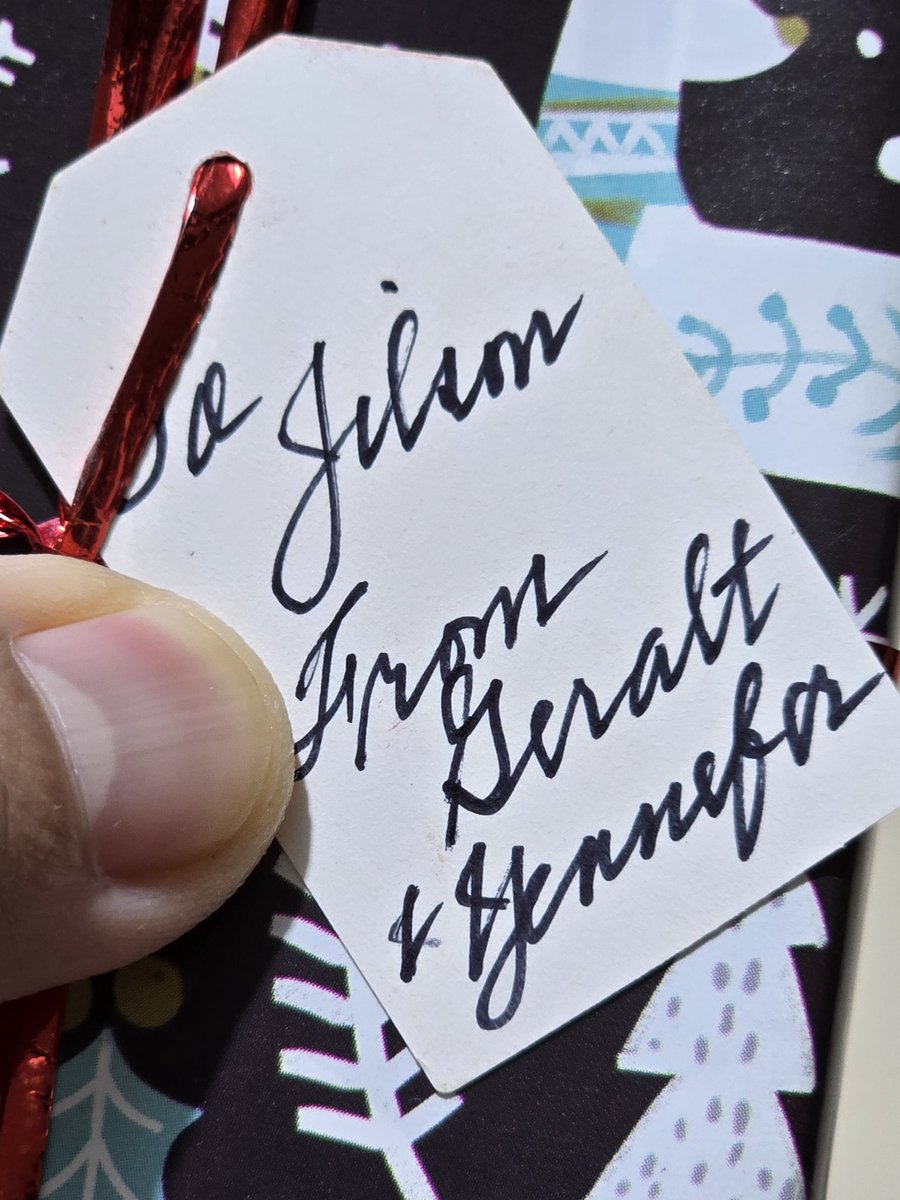 To Jilson
From
Geralt
& Yennefor